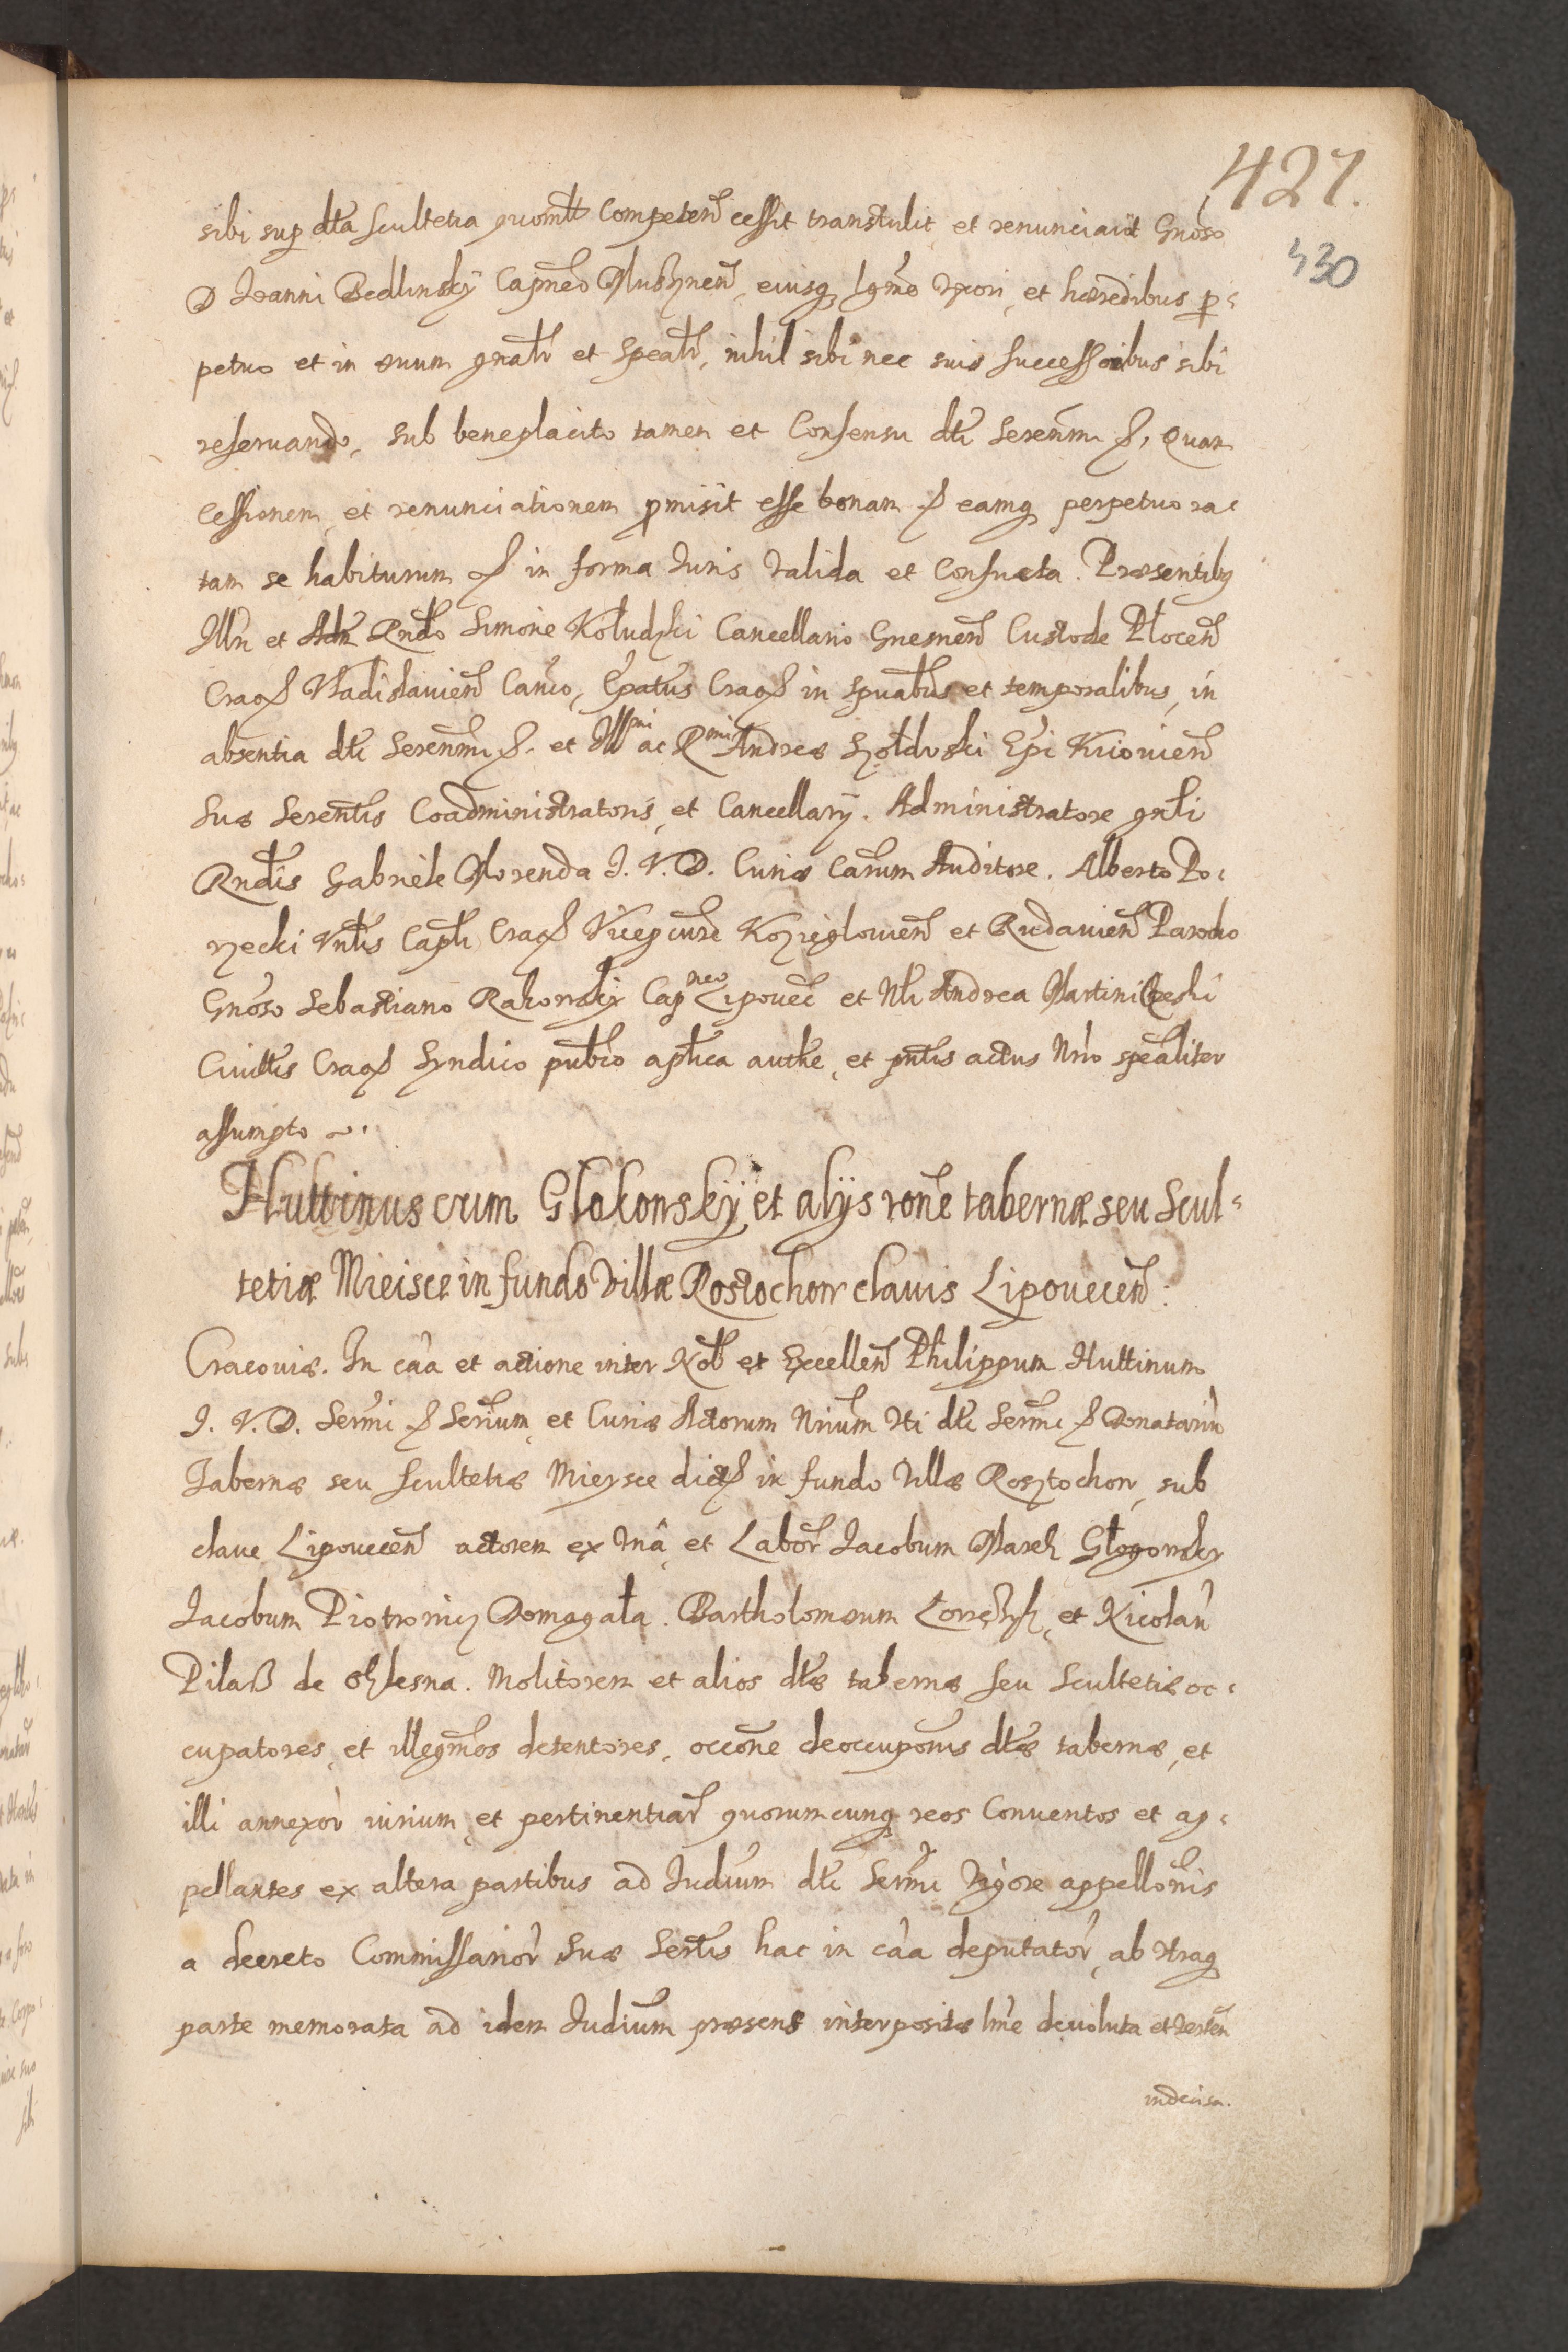 427.
430
sibi sup dta Scultetia quomtt Competen cessit transtulit et renunciavit Gnoso
D Ioanni Bedlinsky Capneo Muszynen, eiusq lgmo Uxori, et hæredibus p-
petuo et in ævum gnatr et Speatr, nihil sibi nec suis Successoribus sibi
reservando, Sub beneplacito tamen et Consensu dti Serenmi &, Quam
Cessionem et renunciationem pmisit esse bonam & eamq perpetuo ra-
tam se habiturum & in forma Iuris Valida et Consueta. Præsentibq
Illri et Adm Rndo Simone Kołudzki Cancellario Gnesnen Custode Płocen
Crac& Vladislavien Canco, Epatus Crac& in Spuabus et temporalibus, in
absentia dti Serenmi &. et Illmi ac Rmi Andreæ Szołdrski Epi Kiiovien
Suæ Serentis Coadministratoris, et Cancellarÿ. Administratore gnti
Rndis Gabriele Morenda I. V. D. Curiæ Carum Auditore. Alberto Bo-
rzecki Vntis Capli Crac& Vicepcure Koziegloviem et Rudavien Parocho
Gnoso Sebastiano Rakowsky Capneo Lipovec et Nti Andrea Martini Rzeski
Civittis Crac& Syndico pubco aplica authe, et pntis actus Nrio spealiter
assumpto ~.
Huttinus cum Glokonsky et alijs rone tabernæ seu Scul-
tetiæ Mieisce in fundo Villæ Rostochow clavis Lipovecen.
Cracoviæ. In caa et actione inter Nob et Excellen Philippum Huttinum
I. V. D. Sermi & Serium et Curiæ Actorum Nrium Uti dti Sermi & Donatariu
Tabernæ seu Scultetiæ Mieysce dict& in fundo Villæ Rosztochow, sub
clave Lipovecen actorem ex Una et Labor Iacobum Marek Głogowsky
Iacobum Piotrowicz Domagała. Bartholomæum et Nicolau
Pilaß de Olesna. Molitorem et alios dtæ tabernæ Seu Scultetiæ oc-
cupatores, et illegmos detentores, occone deoccuponis dtæ tabernæ, et
illi annexor iurium, et pertinentiar quorumcunq reos Conventos et ap-
pellantes ex altera partibus ad Iudium dti Sermi Vigore appellonis
a decreto Commissarior Suæ Sertis hac in caa deputator, ab utraq
parte memorata ad idem Iudium præsens interpositæ lme devoluta et verten
indecisa.